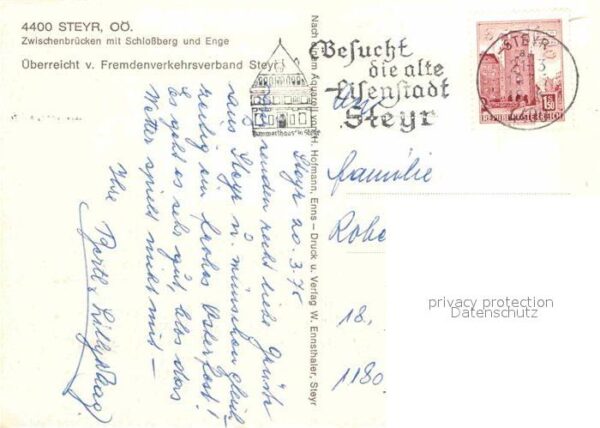 4400 STEYR, OÖ.
Zwischenbrücken mit Schloßberg und Enge
Überreicht v. Fremdenverkehrsverband Steyr
Besucht
die alte
Eisenstadt
Steyr
Bummerlhaus in Steyr
STEYR
1.50
REPUBLIK ÖSTERREICH
Nach einem Aquarell von H. Hofmann, Enns – Druck u. Verlag W. Ennsthaler, Steyr
An
Familie
Robe
18.
1180
Steyr 20.3.75
senden recht liebe Grüße
aus Steyr u. wünschen gleich
zeitig ein frohes Osterfest!
Es geht es sehr gut, blos das
Wetter spielt nicht mit –
Ihre
privacy protection
Datenschutz